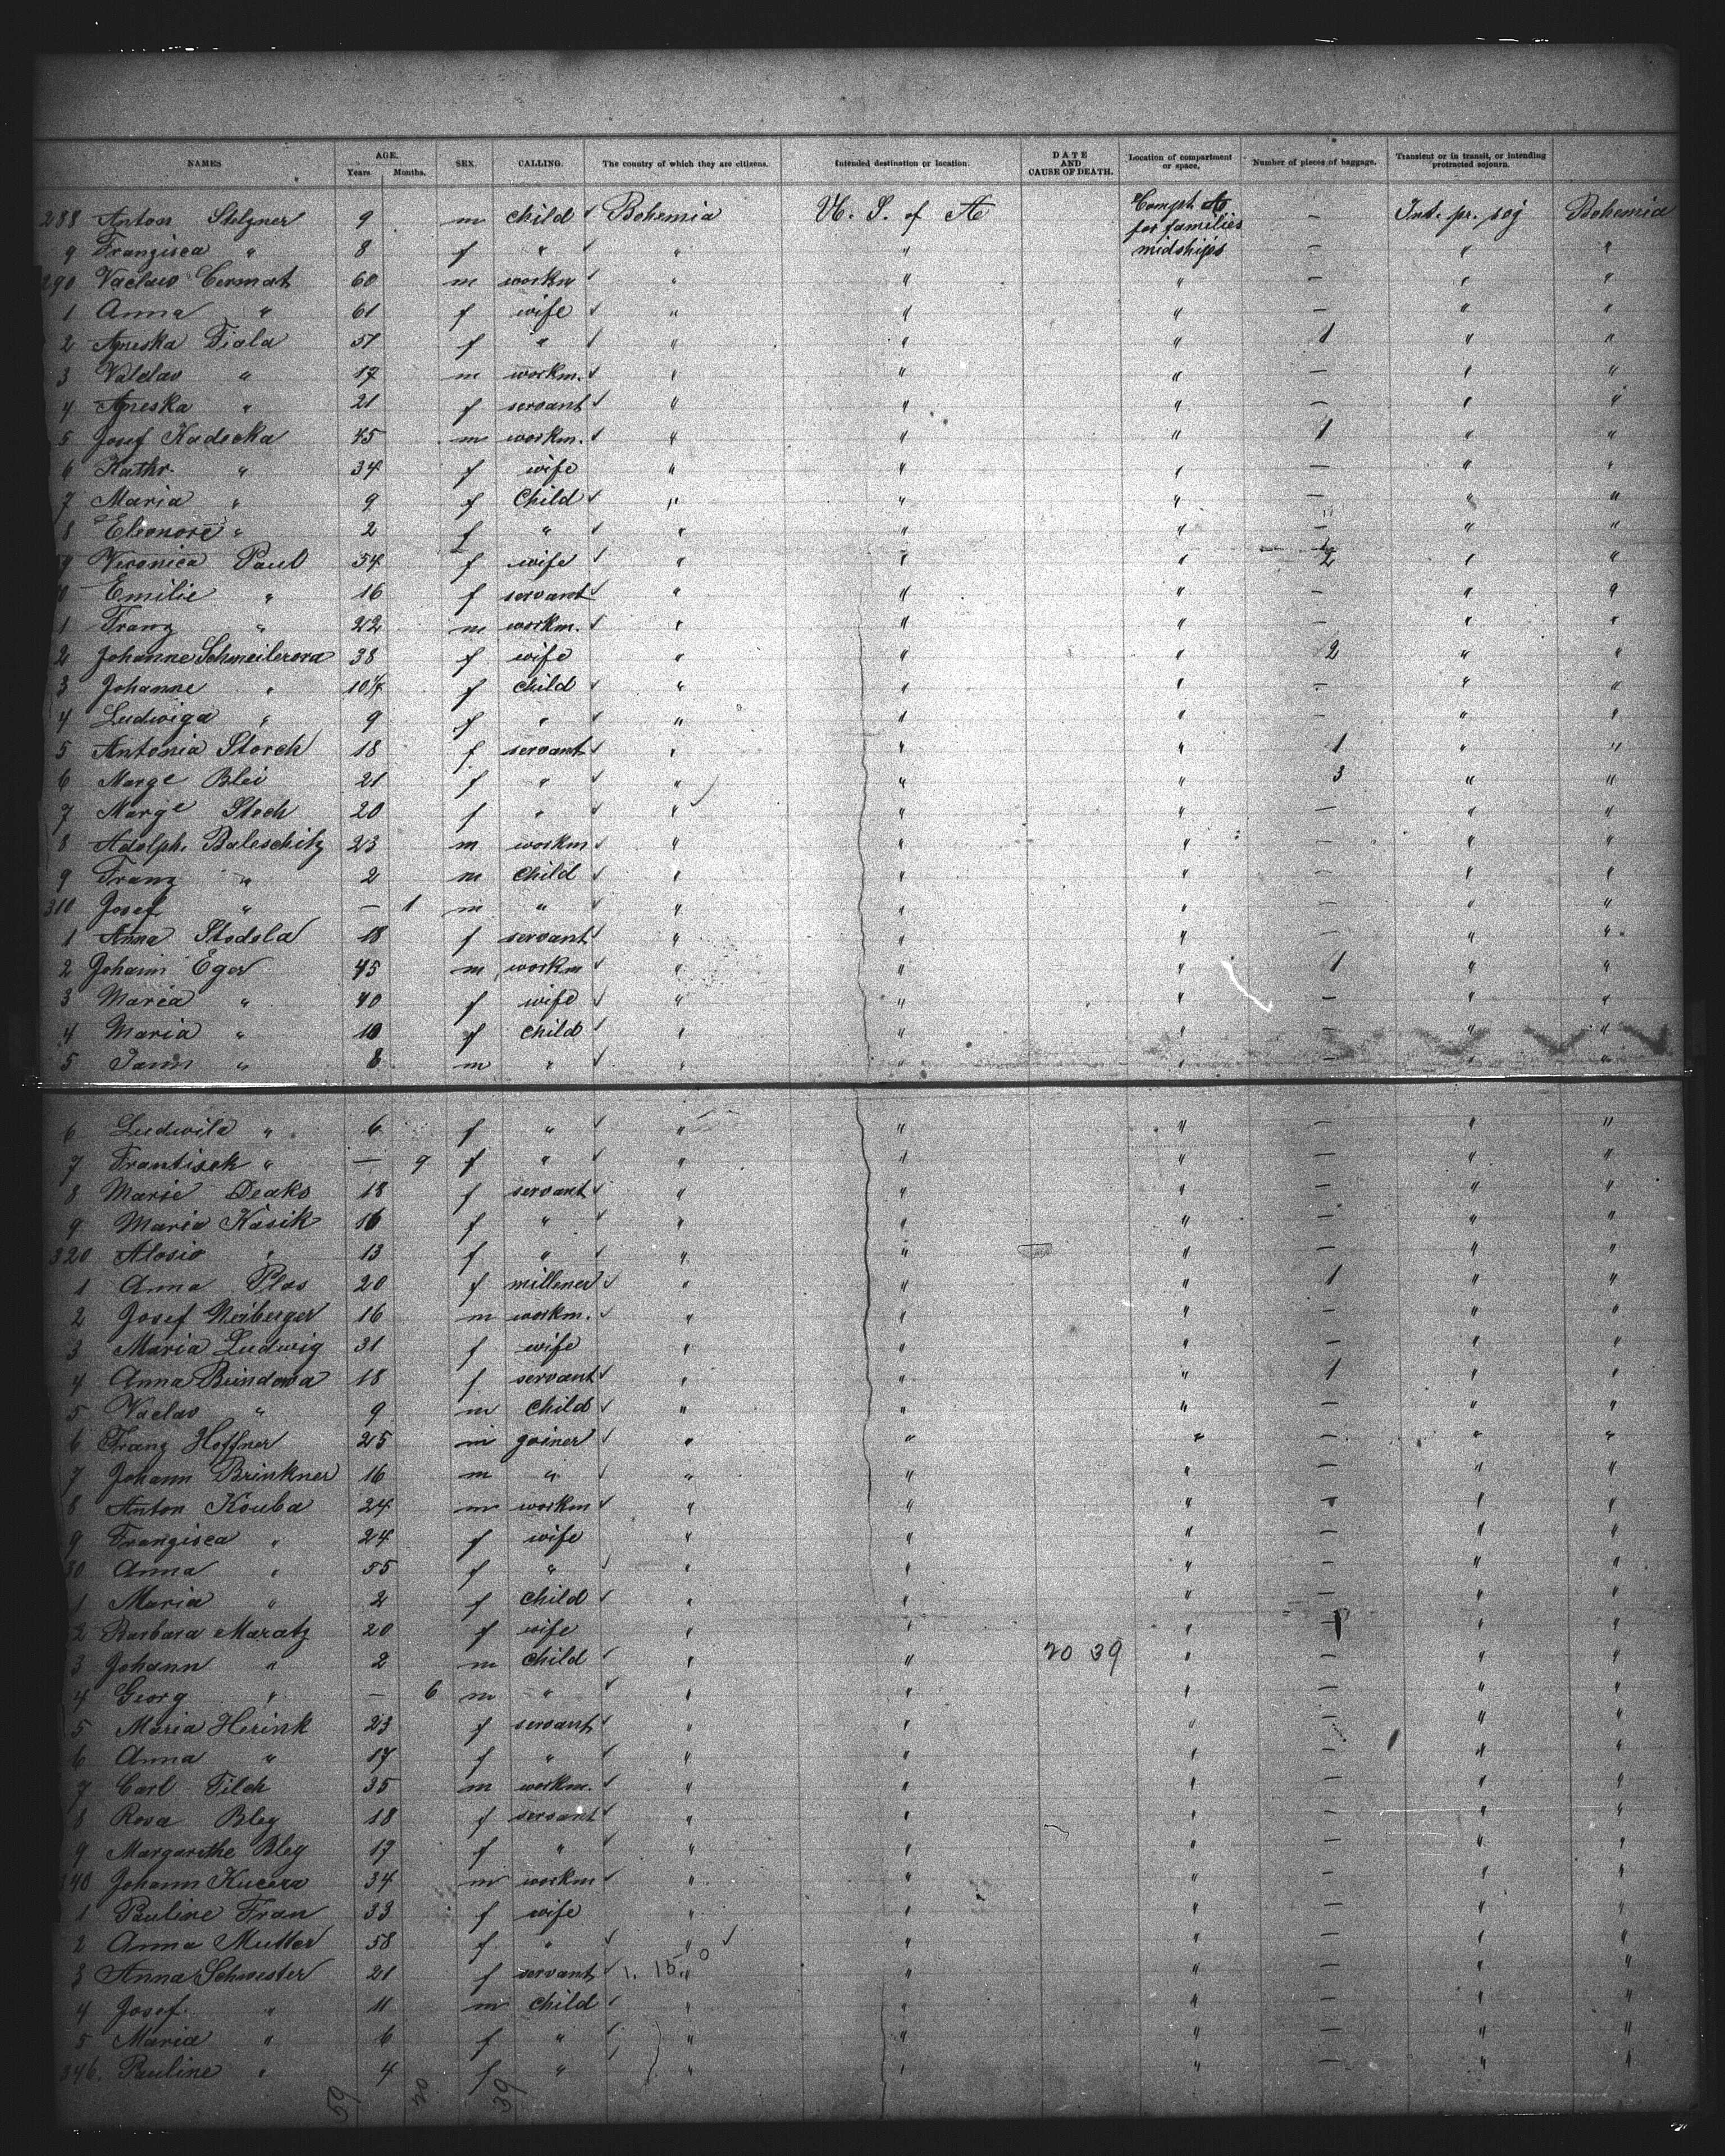 NAMES. AGE. Years Months. SEX. CALLING. The country of which they are citizens. Intended destination or location. DATE AND CAUSE OF DEATH. Location of compartment or space. Number of pieces of baggage. Transient or in transit, or intending protracted sojourn.
288 Anton Stelzner 9 m child ✓ Bohemia U. S. of A Compt. A for families midships — Int. pr. soj Bohemia
9 Franzisca " 8 f " ✓ " " — " "
290 Vaclaw Cermat 60 m workm ✓ " " " — " "
1 Anna " 61 f wife ✓ " " " — " "
2 Agneska Fiala 57 f " ✓ " " " 1 " "
3 Valclav " 17 m workm. ✓ " " " — " "
4 Agneska " 21 f servant ✓ " " " — " "
5 Josef Kadecka 45 m workm. ✓ " " " 1 " "
6 Kathr. " 34 f wife " " " — " "
7 Maria " 9 f Child ✓ " " " — " "
8 Eleonore " 2 f " ✓ " " " — " "
9 Veronica Paul 54 f wife ✓ " " " 2 " "
0 Emilie " 16 f servant ✓ " " " — " "
1 Franz " 22 m workm. ✓ " " " — " "
2 Johanne Schmeilerova 38 f wife " " " 2 " "
3 Johanne " 10 f child ✓ " " " — " "
4 Ludwiga " 9 f " ✓ " " " — " "
5 Antonia Storch 18 f servant ✓ " " " 1 " "
6 Marge Blei 21 f " ✓ " " " 3 " "
7 Marge Stoch 20 f " ✓ " " " — " "
8 Adolph. Baleschitz 23 m workm ✓ " " " — " "
9 Franz " 2 m Child ✓ " " " — " "
310 Josef " — 1 m " ✓ " " " — " "
1 Anna Stodola 18 f servant ✓ " " " — " "
2 Johann Eger 45 m workm ✓ " " " 1 " "
3 Maria " 40 f wife ✓ " " " — " "
4 Maria " 10 f Child ✓ " " " — " "
5 " 8 m " ✓ " " " — " "
6 Ludwila " 6 f " ✓ " " " — " "
7 Frantisek " — 9 f " ✓ " " " — " "
8 Marie Deaks 18 f servant ✓ " " " — " "
9 Maria Kasik 16 f " ✓ " " " — " "
320 Alosio " 13 f " ✓ " " " — " "
1 Anna Plas 20 f millener ✓ " " " 1 " "
2 Josef Neiberger 16 m workm. ✓ " " " — " "
3 Maria Ludwig 31 f wife " " " — " "
4 Anna Bundowa 18 f servant ✓ " " " 1 " "
5 Vaclav " 9 m Child ✓ " " " — " "
6 Franz Hoffner 25 m joiner ✓ " " " — " "
7 Johann Brinkner 16 m " ✓ " " " — " "
8 Anton Kouba 24 m workm ✓ " " " — " "
9 Franzisca " 24 f wife " " " — " "
30 Anna " 55 f " ✓ " " " — " "
1 Maria " 2 f Child ✓ " " " — " "
2 Barbara Maratz 20 f wife " " " 1 " "
3 Johann " 2 m Child ✓ " " 20 39 " — " "
4 Georg " — 6 m " ✓ " " " — " "
5 Maria Herink 23 f servant ✓ " " " — " "
6 Anna " 17 f " ✓ " " " — " "
7 Carl Filch 35 m workm. ✓ " " " — " "
8 Rosa Bley 18 f servant ✓ " " " — " "
9 Margarethe Bley 17 f " ✓ " " " — " "
340 Johann Kucera 34 m workm ✓ " " " — " "
1 Pauline Fran 33 f wife " " " — " "
2 Anna Mutter 58 f " ✓ " ✓ " " — " "
3 Anna Schwester 21 f servant ✓ " " " — " "
4 Josef " 11 m Child ✓ " " " — " "
5 Maria " 6 f " ✓ " " " — " "
346. Pauline " 4 f " " " " — " "
59 20 39